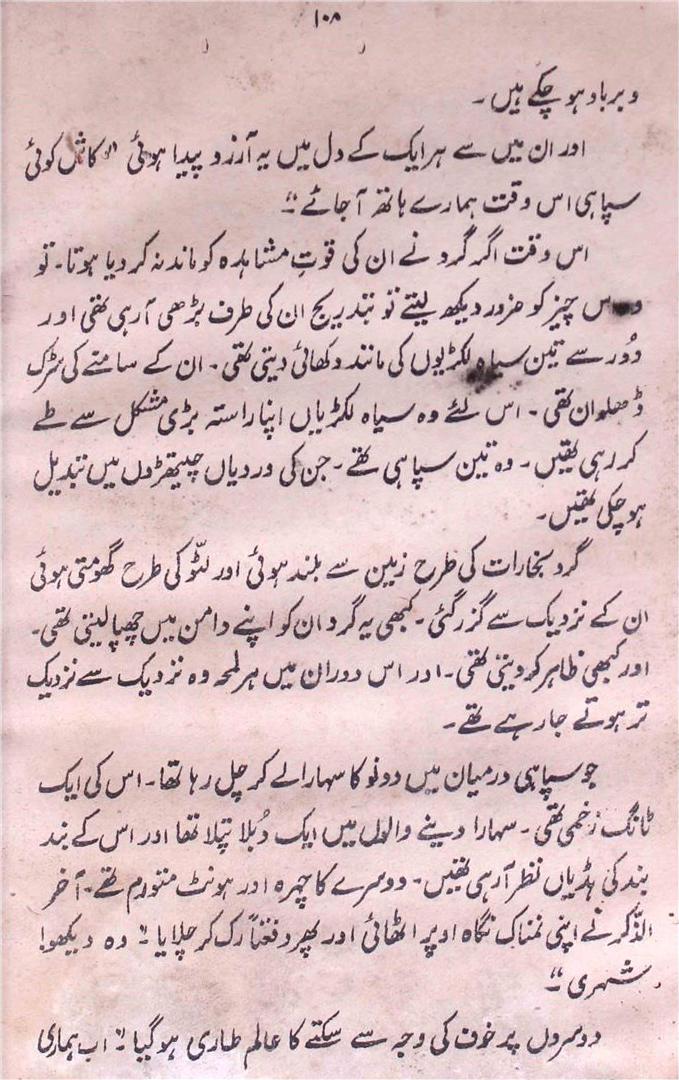 ۱۰۸
و برباد ہو چکے ہیں ۔
اور ان میں سے ہر ایک کے دل میں یہ آرزو پیدا ہوئی "کاش کوئی
سپاہی اس وقت ہمارے ہاتھ آجائے"
اس وقت اگر گرد نے ان کی قوتِ مشاہدہ کو ماند نہ کر دیا ہوتا۔ تو
اس چیز کو ضرور دیکھ لیتے تو بتدریج ان کی طرف بڑھی آرہی تھی اور
دُور سے تین سیاہ لکڑیوں کی مانند دکھائی دیتی تھی۔ ان کے سامنے کی سڑک
ڈھلوان تھی ۔ اس لئے وہ سیاہ لکڑیاں اپنا راستہ بڑی مشکل سے طے
کر رہی تھیں ۔ وہ تین سپاہی تھے ۔ جن کی وردیاں چیتھڑوں میں تبدیل
ہو چکی تھیں۔
گرد بخارات کی طرح زمین سے بلند ہوئی اور لٹّو کی طرح گھومتی ہوئی
ان کے نزدیک سے گزر گئی ۔ کبھی یہ گرد ان کو اپنے دامن میں چھپا لیتی تھی۔
اور کبھی ظاہر کر دیتی تھی۔ اور اس دوران میں ہر لمحہ وہ نزدیک سے نزدیک
تر ہوتے جا رہے تھے ۔
جو سپاہی درمیان میں دونو کا سہارا لے کر چل رہا تھا۔ اس کی ایک
ٹانگ زخمی تھی ۔ سہارا دینے والوں میں ایک دُبلا پتلا تھا اور اس کے بند
بند کی ہڈیاں نظر آرہی تھیں۔ دوسرے کا چہرہ اور ہونٹ متورم تھے۔ آخر
الذّکر نے اپنی نمناک نگاہ اوپر اٹھائی اور پھر دفعتاً رک کر چلایا "وہ دیکھو!
شہری"
دوسروں پر خوف کی وجہ سے سکتے کا عالم طاری ہو گیا "اب ہماری